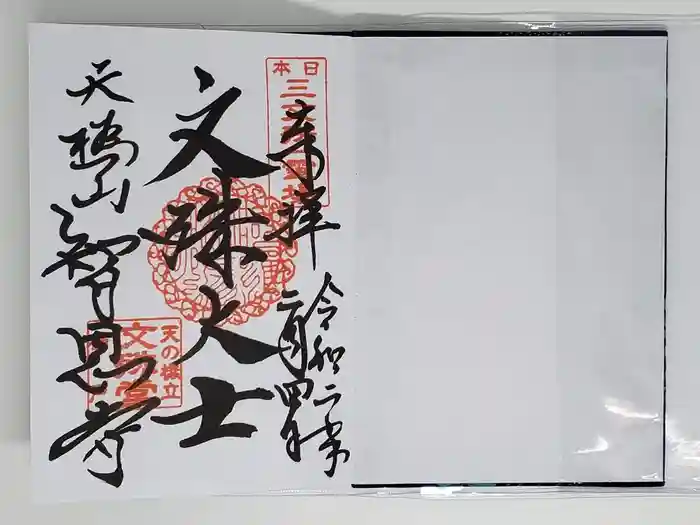 奉拝
令和二歳
二月四日
文殊大士
天橋山
智恩寺
日本三文殊霊場
天の橋立
文殊堂